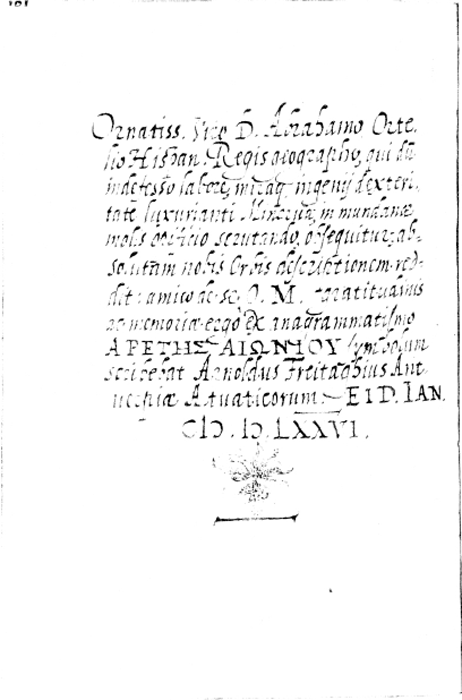 181
Ornatiss. Viro D. Abrahamo Orte,
lio Hispan. Regis geographo, qui dū
indefesso labore, miraq; ingenij dexteri,
tate luxurianti Minerua, in mundanæ
molis orificio scrutando, obsequitur; ab-
solutam nobis Orbis descriptionem red-
dit: amico de se, O. M. gratitudinis
ac memoriæ ergo ex anagrammatismo
ΑΡΕΤΗΣ ΑΙΩΝ ΟΥ symbolum
scribebat Arnoldus Freitaghius Ant
uerpiæ Atuaticorum EID. IAN.
CIƆ. IƆ. LXXVI.